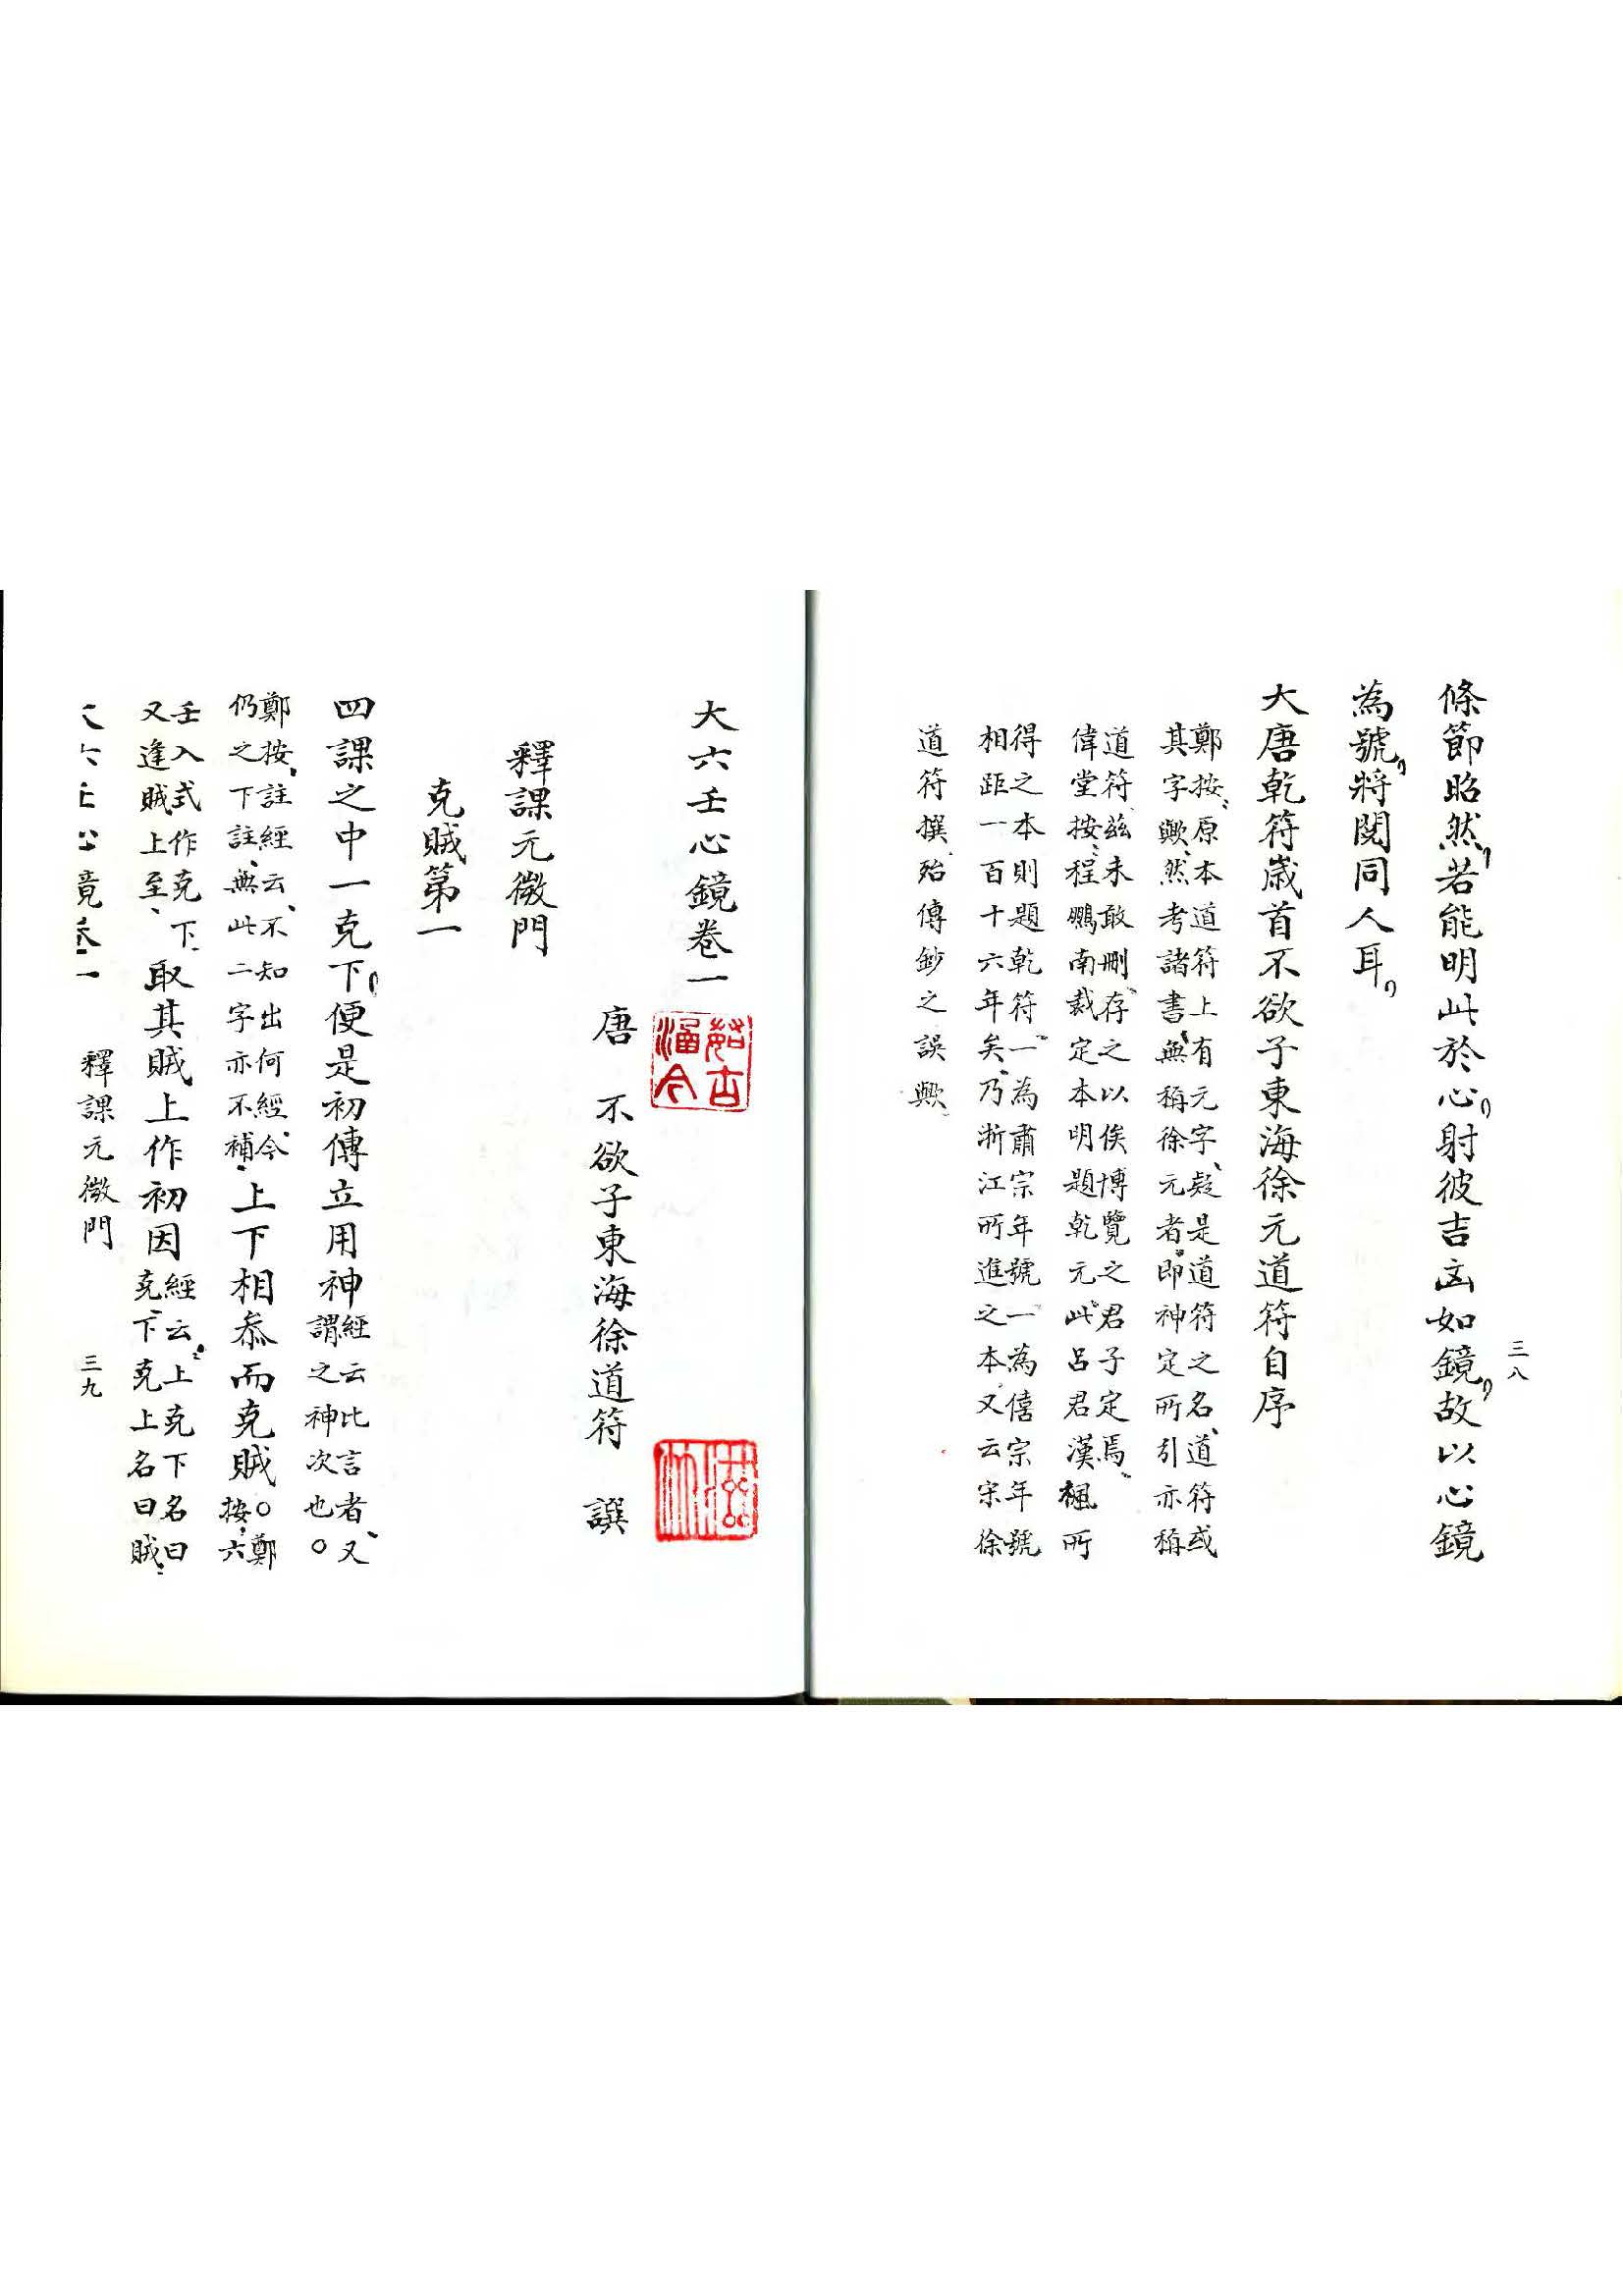 三八
條節昭然,若能明此於心,射彼吉凶如鏡,故以心鏡
為號,將閱同人耳,
大唐乾符歲首不欲子東海徐元道符自序
鄭按、原本道符上有元字、疑是道符之名、道符或
其字歟、然考諸書、無稱徐元者、即神定所引亦稱
道符、茲未敢刪、存之以俟博覽之君子定焉、
偉堂按、程鵬南裁定本明題乾元、此呂君漢楓所
得之本則題乾符、一為肅宗年號、一為僖宗年號
相距一百十六年矣、乃浙江所進之本、又云宋徐
道符撰、殆傳鈔之誤歟
大六壬心鏡卷一
唐 不欲子東海徐道符 譔
釋課元微門
克賊第一
四課之中一克下,便是初傳立用神經云比言者、又謂之神次也○
鄭按、註經云、不知出何經、今仍之下註、無此二字亦不補、上下相叅而克賊○鄭按、六
壬入式作克下、又逢賊上至、取其賊上作初因經云、上克下名曰克、下克上名曰賊、
大六壬心鏡卷一 釋課元微門 三九